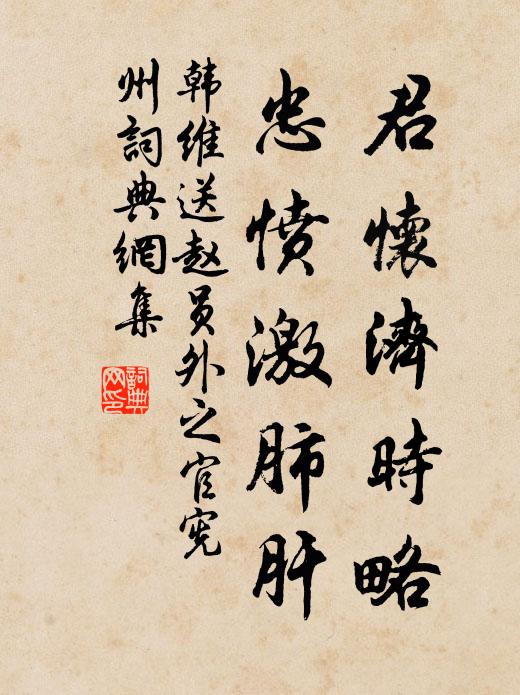 君懷濟時略
忠憤激肺肝
韓維送赵员外之官宪
州詞典網集
詞典网印